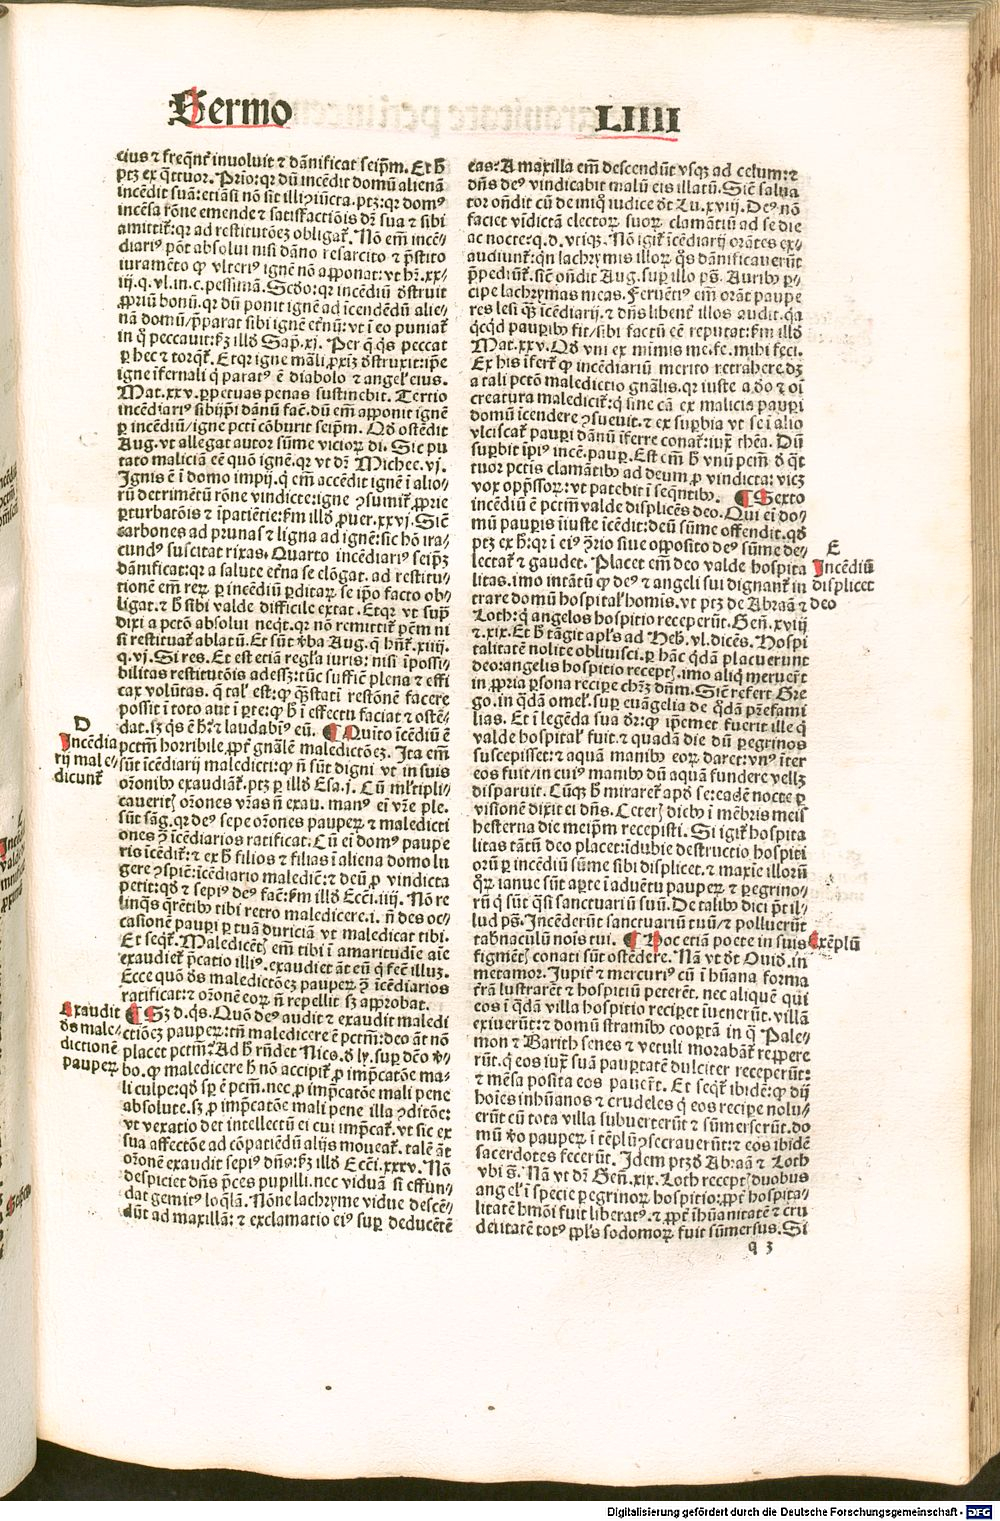 Sermo LIIII
eiꝰ ⁊ freq̃nt̃ inuoluit ⁊ dãnificat seip̃m. Et h̃
ptꝫ ex q̃ttuor. Prio: qꝛ dũ incẽdit domũ alienã
incẽdit suã: etiã si nõ sit illi ꝯiũcta. ptꝫ: qꝛ domꝰ
incẽsa rõne emende ⁊ satisfactiõis dꝛ̃ sua ⁊ sibi
amittit̃: qꝛ ad restitutõeꝫ obligat̃. Nõ em̃ incẽ⸗
diariꝰ põt absolui nisi dãno resarcito ⁊ p̃stito
iuramẽto ꝙ vlteriꝰ ignẽ nõ apponat: vt hr̃. xx⸗
iij. q. vl. in. c. pessimã. Scḋo: qꝛ incẽdiũ ꝺstruit
ꝓpriũ bonũ. qꝛ dũ ponit ignẽ ad ĩcendẽdũ alie⸗
nã domũ/p̃parat sibi ignẽ et̃nũ: vt ĩ eo puniat̃
in q̃ peccauit: ẜꝫ illḋ Sap̃. xj. Per q̃ q̃s peccat
ꝑ hec ⁊ torq̃t̃. Et qꝛ igne mãli ꝓxiꝫ ꝺstruxit: ip̃e
igne ĩfernali q̃ paratꝰ ẽ diabolo ⁊ angel̃ eius.
Mat. xxv. ꝑpetuas penas sustinebit. Tertio
incẽdiariꝰ sibijp̃i dãnũ fac̃. dũ em̃ apponit ignẽ
ꝑ incẽdiũ/igne pcti cõburit seip̃m. Qḋ ostẽdit
Aug. vt allegat autor sũme vicioꝝ di. Sic pu
tato maliciã eẽ quõ ignẽ. qꝛ vt dꝛ̃ Michee. vj.
Ignis ẽ ĩ domo impij. q̃ em̃ accẽdit ignẽ ĩ alio⸗
rũ detrimẽtũ rõne vindicte: igne ꝯsumit̃ ꝓprie
ꝑturbatõis ⁊ ĩpatiẽtie: ẜm illḋ ꝓuer. xxvj. Sic̃
carbones ad prunas ⁊ ligna ad ignẽ: sic hõ ira⸗
cundꝰ suscitat rixas. Quarto incẽdiariꝰ seip̃ꝫ
dãnificat: qꝛ a salute et̃na se elõgat. ad restitu⸗
tionẽ em̃ reꝝ ꝑ incẽdiũ ꝑditaꝝ se ip̃o facto ob⸗
ligat. ⁊ h̃ sibi valde difficile extat. Et qꝛ vt sup̃
dixi a pctõ absolui neqt̃. qꝛ nõ remittit̃ pc̃m ni
si restituat̃ ablatũ. Et sũt ṽba Aug. q̃ hñt̃. xiiij.
q. vj. Si res. Et est etiã regl̃a iuris: nisi ĩpossi⸗
bilitas restitutõis adessꝫ: tũc suffic̃ plena ⁊ effi
cax volũtas. q̃ tal̃ est: ꝙ q̃stati restõnẽ facere
possit ĩ toto aut ĩ ꝑte: ꝙ h̃ ĩ effectu faciat ⁊ ostẽ⸗
dat. sꝫ q̃s ẽ hꝰ: ⁊ laudabiꝰ eũ. ¶ Quĩto ĩcẽdiũ ẽ
pctm̃ horribile. ꝓpt̃ gnãlẽ maledictõeꝫ. Ita em̃
sũt ĩcẽdiarij maledicti: ꝙ ñ sũt digni vt in suis
or̃oniƀꝰ exaudiãt̃. ptꝫ ꝑ illḋ Esa. j. Cũ ml̃tipli⸗
caueritꝭ or̃ones vr̃as ñ exau. manꝰ ei vr̃e ple.
sũt sãg. qꝛ deꝰ sepe or̃ones pauperꝝ ⁊ maledicti
ones ꝯ̃ ĩcẽdiarios ratificat. Cũ ei domꝰ paupe
ris ĩcẽdit̃: ⁊ ex h̃ filios ⁊ filias ĩ aliena domo lu
gere ꝯspic̃: ĩcẽdiario maledic̃: ⁊ deũ ꝓ vindicta
petit: qḋ ⁊ sepiꝰ deꝰ fac̃: ẜm illḋ Ecc̃i. iiij. Nõ re
linq̃s q̃rẽtiƀꝰ tibi retro maledicere. i. ñ des oc⸗
casionẽ pauꝑi ꝑ tuã duriciã vt maledicat tibi.
Et seqt̃. Maledicẽtꝭ em̃ tibi ĩ amaritudĩe aĩe
exaudiet̃ p̃catio illiꝰ. exaudiet ãt eũ q̃ fec̃ illuꝫ.
Ecce quõ ꝺs maledictõeꝫ pauperꝝ ꝯ̃ ĩcẽdiarios
ratificat: ⁊ or̃onẽ eoꝝ ñ repellit sꝫ approbat.
¶ Sꝫ d. q̃s. Quõ deꝰ audit ⁊ exaudit maledi
ctiõeꝫ pauperꝝ: tñ maledicere ẽ pctm̃: deo ãt nõ
placet pctm̃? Ad h̃ rñdet Nico. ꝺ ly. sup̃ dc̃o ṽ⸗
bo. ꝙ maledicere h̃ nõ accipit̃ ꝓ imp̃catõe ma⸗
li culpe: qḋ sp̃ ẽ pc̃m. nec ꝓ imp̃catõe mali pene
absolute. sꝫ ꝓ imp̃catõe mali pene illa ꝯditõe:
vt vexatio det intellectũ ei cui imp̃cat̃. vt sic ex
sua affectõe ad cõpatiẽdũ alijs moueat̃. talẽ ãt
or̃onẽ exaudit sepiꝰ dñs: ẜꝫ illḋ Ecc̃i. xxxv. Nõ
despiciet dñs p̃ces pupilli. nec viduã si effun⸗
dat gemitꝰ loq̃la. Nõne lachryme vidue descẽ⸗
dũt ad maxillã: ⁊ exclamatio eiꝰ sup̃ deducẽtẽ
D
Incẽdia
rij male⸗
dicunt̃
Exaudit
ꝺs male⸗
dictionẽ
pauperꝝ
eas? A maxilla em̃ descendũt vsqꝫ ad celum: ⁊
dñs deꝰ vindicabit malũ eis illatũ. Sic̃ salua
tor oñdit cũ de iniq̃ iudice ꝺt Lu. xviij. Deꝰ nõ
faciet vĩdictã electoꝝ suoꝝ clamãtiũ ad se die
ac nocte: q. d. vtiqꝫ. Nõ igit̃ ĩcẽdiarij orãtes ex⸗
audiunt̃: qñ lachrymis illoꝝ q̃s dãnificauerũt
p̃pediũt̃. sic̃ oñdit Aug. sup̃ illo ps̃. Auriƀꝰ ꝑ⸗
cipe lachrymas meas. Feruẽtiꝰ em̃ orãt paupe
res lesi q̃ꝫ ĩcẽdiarij. ⁊ dñs libent̃ illos audit. q̃a
qcq̃d pauꝑiƀꝰ fit/sibi factũ eẽ reputat: ẜm illḋ
Mat. xxv. Qḋ vni ex mĩmis me. fe. mihi feci.
Ex his ĩfert̃ ꝙ incẽdiariũ merito retrahere dꝫ
a tali pctõ maledictio gnãlis. qꝛ iuste a ꝺo ⁊ oĩ
creatura maledicit̃: q̃ sine cã ex malicia pauꝑi
domũ ĩcendere ꝯsueuit. ⁊ ex suꝑbia vt se ĩ alio
vlciscat̃ pauꝑi dãnũ ĩferre conat̃: iuꝑ thẽa. Dũ
suꝑbit ĩpiꝰ incẽ. pauꝑ. Est em̃ h̃ vnũ pcm̃ ꝺ q̃t
tuor pctis clamãtiƀꝰ ad deum ꝓ vindicta: vicꝫ
vox opp̃ssoꝝ: vt patebit ĩ seq̃ntiƀꝰ. ¶ Sexto
incẽdiũ ẽ pctm̃ valde displicẽs deo. Qui ei do⸗
mũ pauꝑis ĩiuste ĩcẽdit: deũ sũme offendit. qḋ
ptꝫ ex h̃: qꝛ ĩ eiꝰ ꝯ̃rio siue opposito deꝰ sũme de⸗
lectat̃ ⁊ gaudet. Placet em̃ deo valde hospita
litas. imo intãtũ ꝙ deꝰ ⁊ angeli sui dignant̃ in
trare domũ hospital̃ homis. vt ptꝫ de Abraã ⁊
Loth: q̃ angelos hospitio receperũt. Geñ. xviij
⁊. xix. Et h̃ tãgit apl̃s ad Heb̃. vl. dicẽs. Hospi
talitatẽ nolite obliuisci. ꝑ hãc q̃dã placuerunt
deo: angelis hospitio receptꝭ. imo aliq̃ meruer̃t
in ꝓpria ꝑsona recipe chr̃ꝫ dñm. Sic̃ refert Gre
go. in q̃dã omel̃. sup̃ euãgelia de q̃dã pr̃efami
lias. Et ĩ legẽda sua ꝺꝛ̃: ꝙ ip̃emet fuerit ille q̃
valde hospital̃ fuit. ⁊ quadã die dũ peregrinos
suscepisset: ⁊ aquã maniƀꝰ eoꝝ daret: vnꝰ ĩter
eos fuit/in cuiꝰ maniƀꝰ dũ aquã fundere vellꝫ
disparuit. Cũqꝫ h̃ miraret̃ apḋ se: eadẽ nocte ꝑ
visionẽ dixit ei dñs. Ceterꝭ dieƀꝰ ĩ mẽbris meis
hesterna die meip̃m recepisti. Si igit̃ hospita
litas tãtũ deo placet: ĩdubie destructio hospiti
orũ ꝑ incẽdiũ sũme sibi displicet. ⁊ maxĩe illorũ
q̃ꝝ ianue sũt aꝑte ĩ aduẽtu pauperꝝ ⁊ peregrino⸗
rũ q̃ sũt q̃si sanctuariũ suũ. De taliƀꝰ dici p̃t il⸗
lud ps̃. Incẽderũt sanctuariũ tuũ/⁊ polluerũt
tab̃naculũ nois tui. ¶ Hoc etiã poete in suis
figmẽtꝭ conati sũt ostẽdere. Nã vt ꝺt Ouid. in
metamor. Jupit̃ ⁊ mercuriꝰ cũ ĩ hũana forma
t̃rã lustrarẽt ⁊ hospitiũ peterẽt. nec aliquẽ qui
eos ĩ q̃dã villa hospitio reciꝑet iuenerũt. villã
exiuerũt: ⁊ domũ stramĩƀꝰ coopt̃ã in q̃ Pale⸗
mon ⁊ Barith senes ⁊ vetuli morabãt̃ reppere
rũt. q̃ eos iuꝑ suã pauꝑtatẽ dulciter receperũt:
⁊ mẽsa posita eos pauer̃t. Et seqt̃ ibidẽ: ꝙ dij
hoĩes inhũanos ⁊ crudeles q̃ eos recipe nolu⸗
erũt cũ tota villa subuerterũt ⁊ sũmerserũt. do
mũ ṽo pauperꝝ ĩ tẽplũ ꝯsecrauerũt: ⁊ eos ibidẽ
sacerdotes fecerũt. Idem ptꝫ ꝺ Abraã ⁊ Loth
vbi s̃. Nã vt dꝛ̃ Geñ. xix. Loth receptꝭ duobus
angel̃ ĩ specie peregrinoꝝ hospitio: ꝓpt̃ hospita⸗
litatẽ hmõi fuit liberatꝰ. ⁊ ꝓpt̃ ĩhũanitatẽ ⁊ cru
delitatẽ totꝰ ppl̃s sodomoꝝ fuit sũmersus. Si
E
Incẽdiũ
displicet
deo
Exẽplũ
q 3
Digitalisierung gefördert durch die Deutsche Forschungsgemeinschaft - DFG